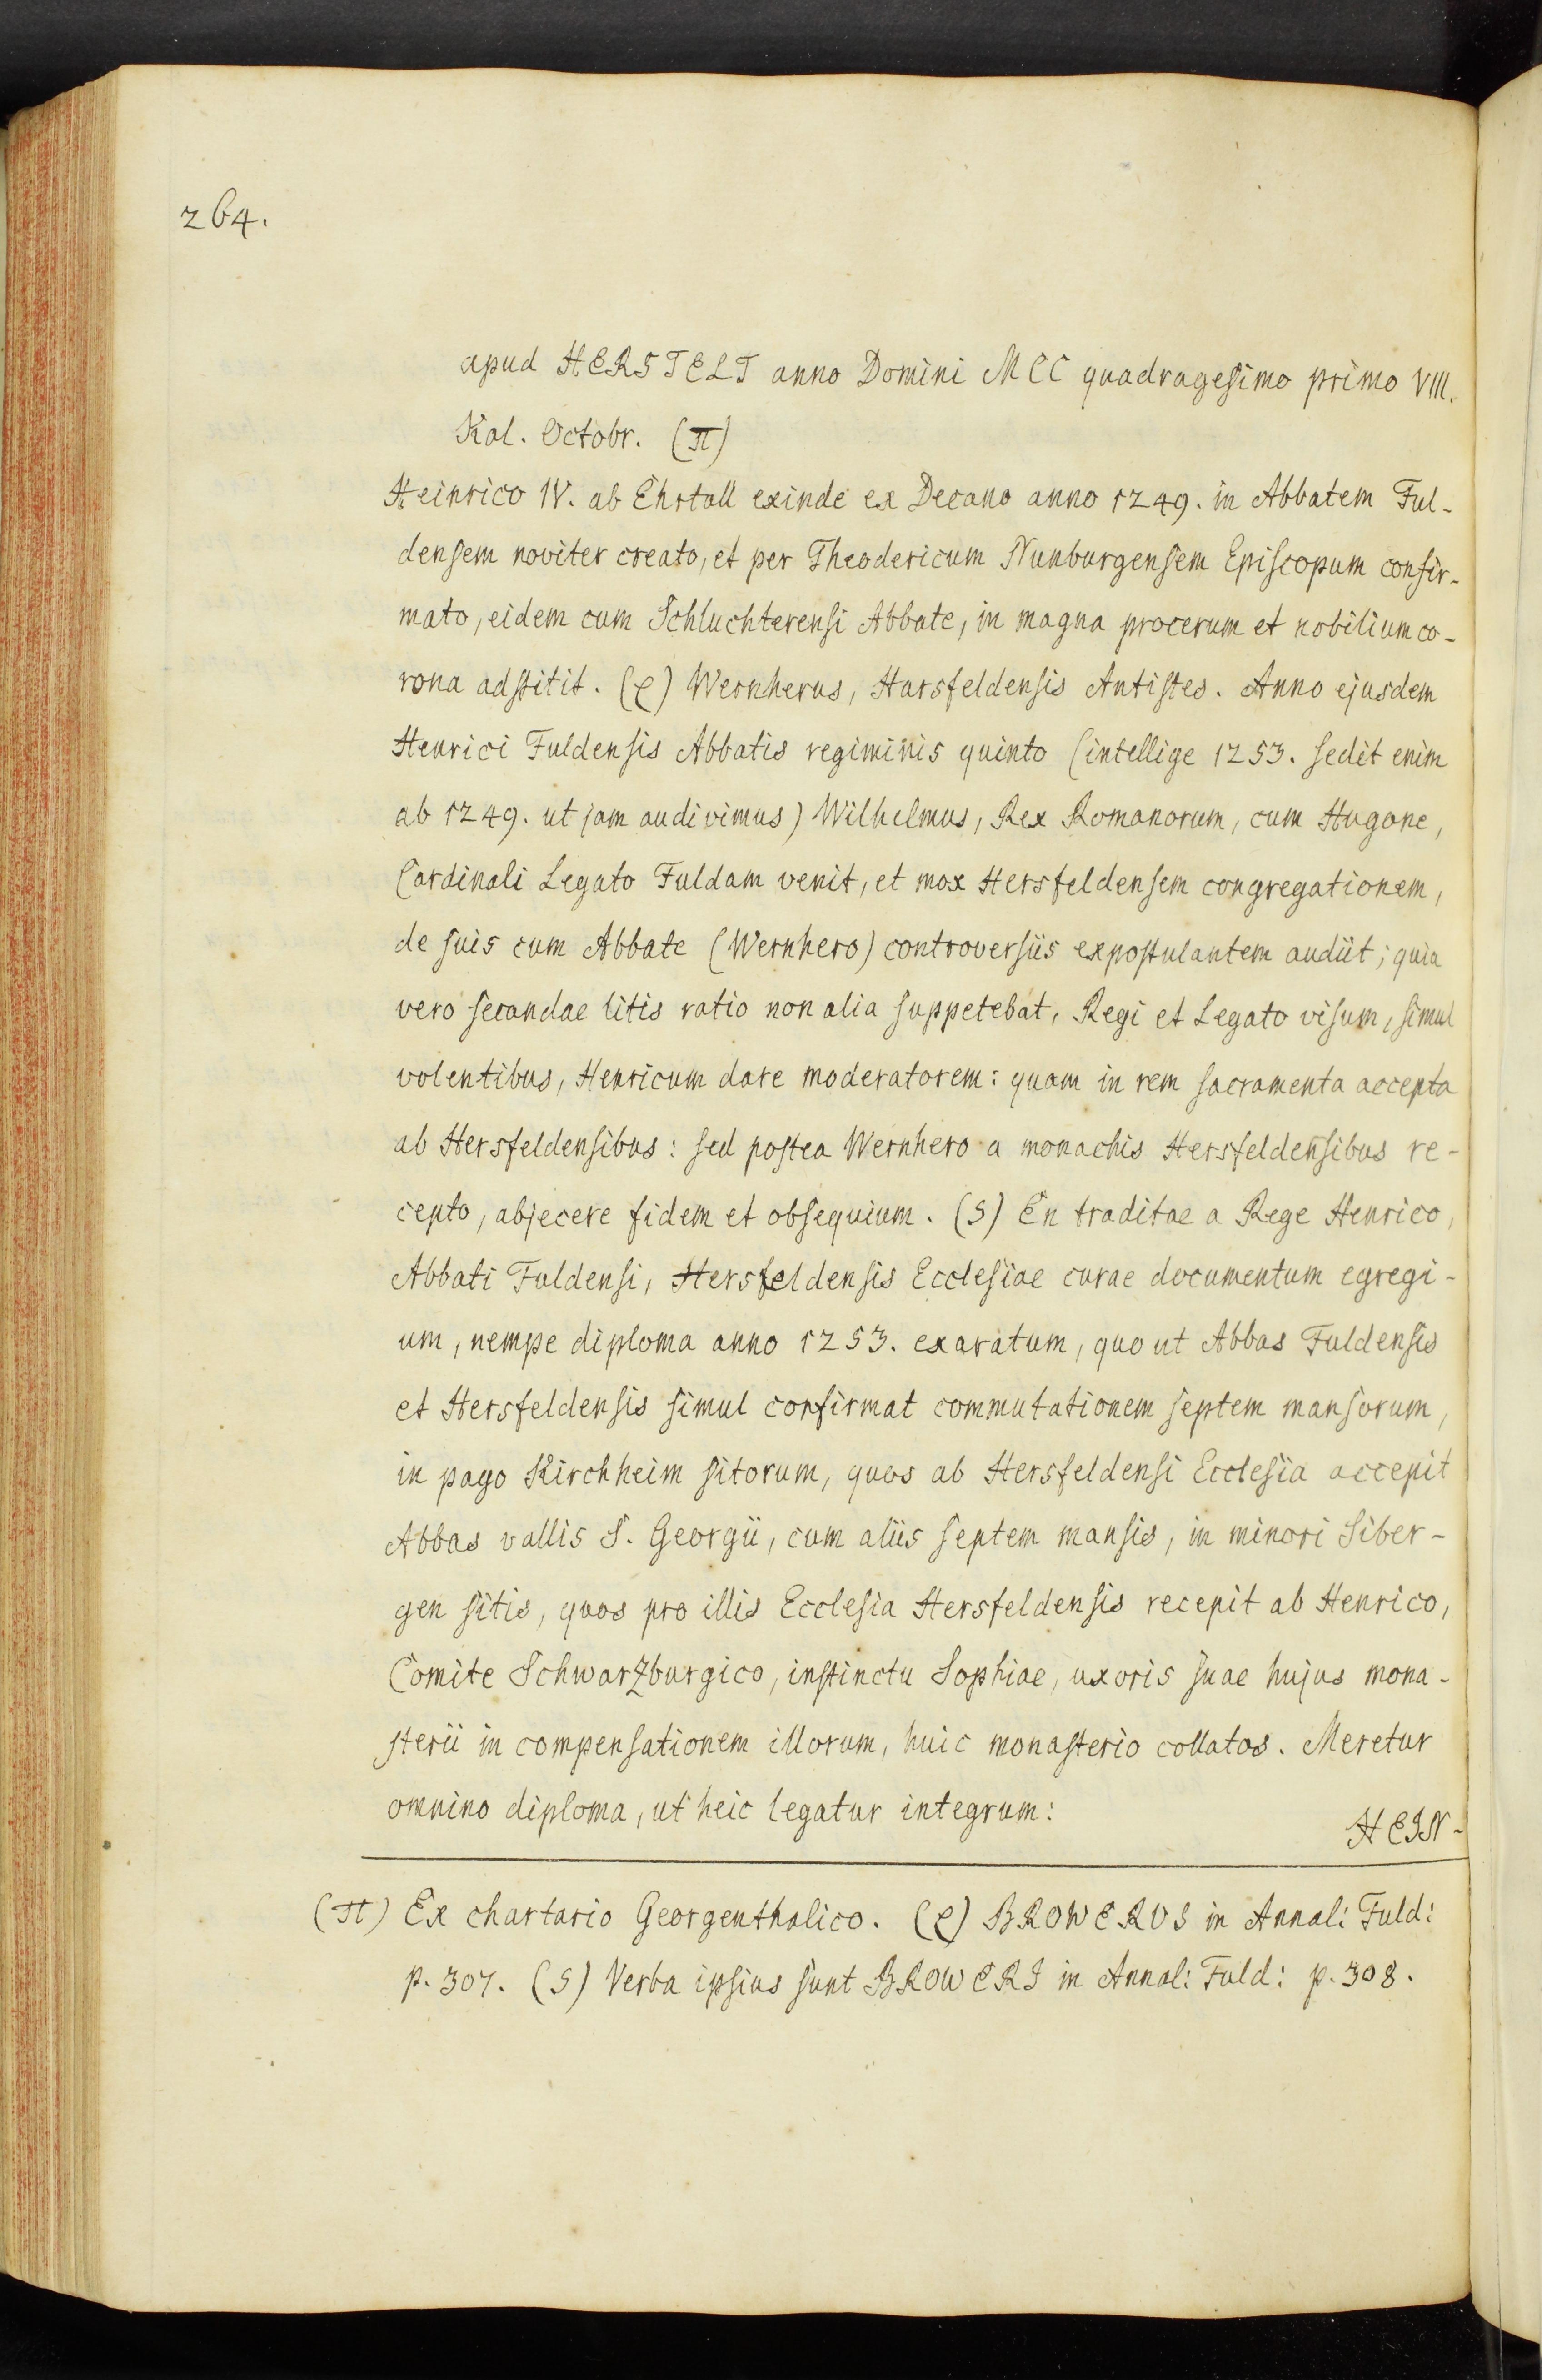 264.
apud HERSTELT anno Domini MCC quadragesimo primo VIII.
Kal. Octobr. (π)
Heinrico IV. ab Ehrtall exinde ex Decano anno 1249. in Abbatem Ful-
densem noviter creato, et per Theodericum Nunburgensem Episcopum confir-
mato, eidem cum Schluchterensi Abbate, in magna procerum et nobilium co-
rona adstitit. (ρ) Wernherus, Harsfeldensis Antistes. Anno ejusdem
Henrici Fuldensis Abbatis regiminis quinto (intellige 1253. sedit enim
ab 1249. ut jam audivimus) Wilhelmus, Rex Romanorum, cum Hugone,
Cardinali Legato Fuldam venit, et mox Hersfeldensem congregationem,
de suis cum Abbate (Wernhero) controversiis expostulantem audiit; quia
vero secandae litis ratio non alia suppetebat, Regi et Legato visum, simul
volentibus, Henricum dare moderatorem: quam in rem sacramenta accepta
ab Hersfeldensibus: sed postea Wernhero a monachis Hersfeldensibus re-
cepto, abjecere fidem et obsequium. (S) En traditae a Rege Henrico,
Abbati Fuldensi, Hersfeldensis Ecclesiae curae documentum egregi-
um, nempe diploma anno 1253. exaratum, quo ut Abbas Fuldensis
et Hersfeldensis simul confirmat commutationem septem mansorum,
in pago Kirchheim sitorum, quos ab Hersfeldensi Ecclesia accepit
Abbas vallis S. Georgii, cum aliis septem mansis, in minori Siber-
gen sitis, quos pro illis Ecclesia Hersfeldensis recepit ab Henrico,
Comite Schwarzburgico, instinctu Sophiae, uxoris suae hujus mona-
sterii in compensationem illorum, huic monasterio collatos. Meretur
omnino diploma, ut heic legatur integrum:
HEIN-
(π) Ex chartario Georgenthalico. (ρ) BROWERUS in Annal: Fuld:
p. 307. (S) Verba ipsius sunt BROWERI in Annal: Fuld: p. 308.